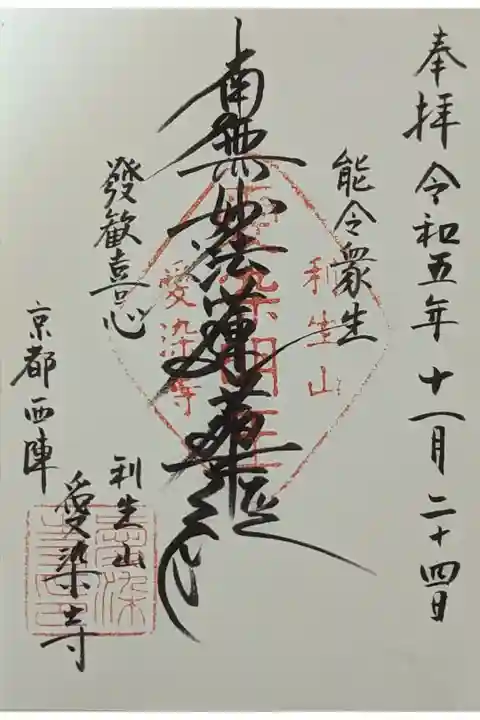 奉拝 令和五年 十一月二十四日
能令衆生
南無妙法蓮華経
發歓喜心
京都西陣
利生山
愛染寺
愛染明王
利生山
愛染寺